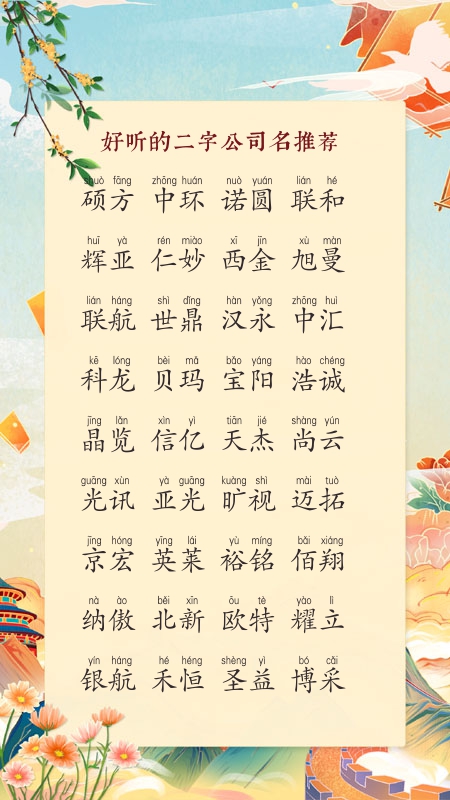 好听的二字公司名推荐
shuò fāng zhōng huán nuò yuán lián hé
硕方 中环 诺圆 联和
huī yà rén miào xī jīn xù màn
辉亚 仁妙 西金 旭曼
lián háng shì dǐng hàn yǒng zhōng huì
联航 世鼎 汉永 中汇
kē lóng bèi mǎ bǎo yáng hào chéng
科龙 贝玛 宝阳 浩诚
jīng lǎn xìn yì tiān jié shàng yún
晶览 信亿 天杰 尚云
guāng xùn yà guāng kuàng shì mài tuò
光讯 亚光 旷视 迈拓
jīng hóng yīng lái yù míng bǎi xiáng
京宏 英莱 裕铭 佰翔
nà ào běi xīn ōu tè yào lì
纳傲 北新 欧特 耀立
yín háng hé héng shèng yì bó cǎi
银航 禾恒 圣益 博采